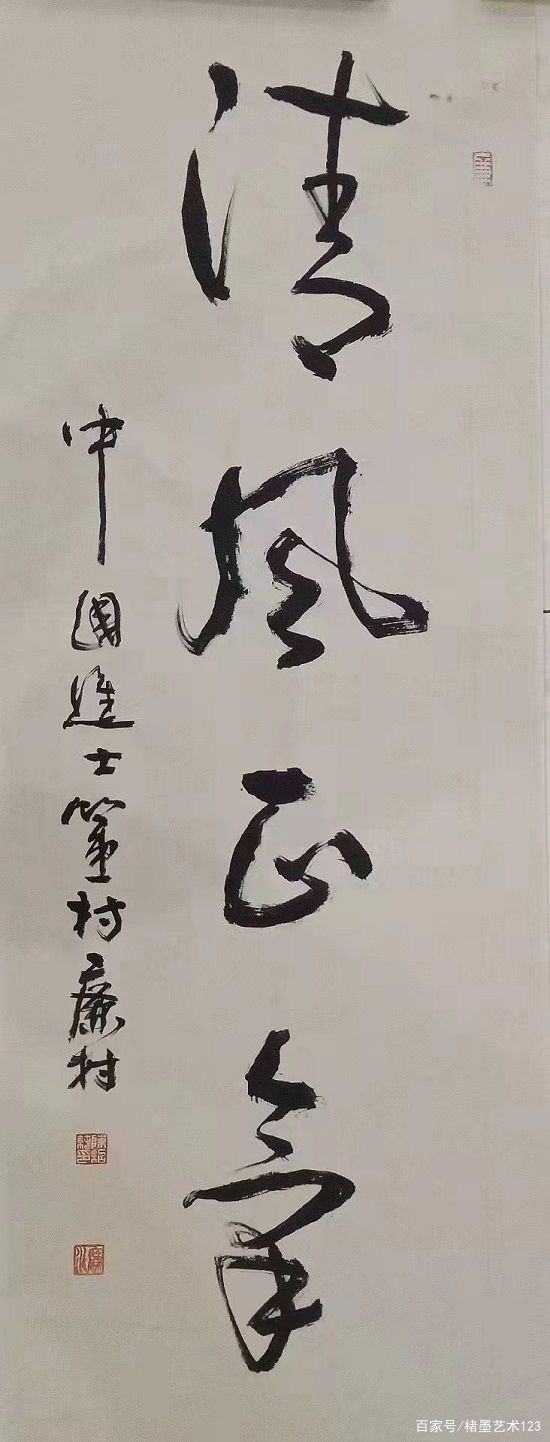 清风正氣
中國進士第一村廉村
百家号/楮墨艺术123